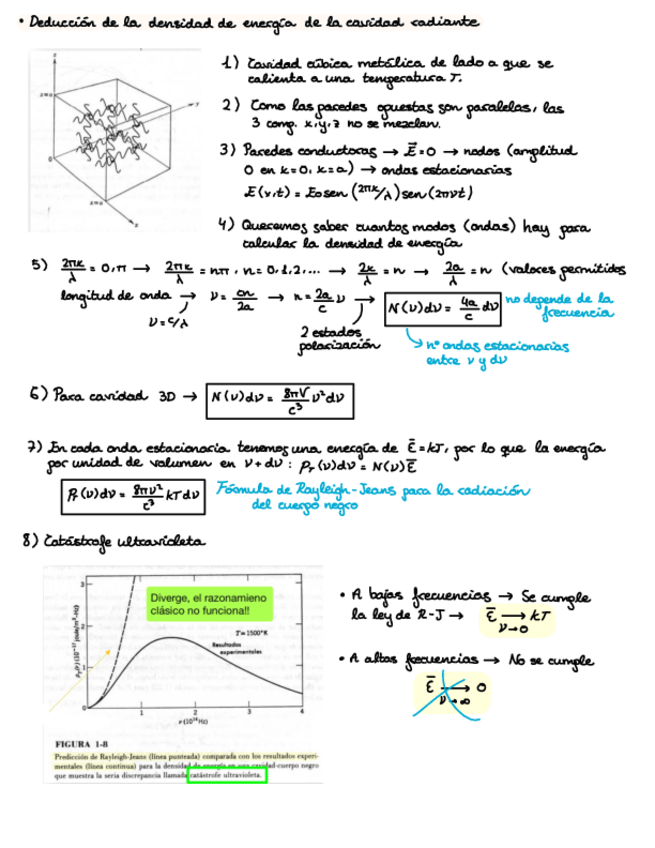 • Deducción de la densidad de energía de la cavidad radiante
1) Cavidad cúbica metálica de lado a que se
calienta a una temperatura T.
2) Como las paredes opuestas son paralelas, las
3 comp. x, y, z no se mezclan.
3) Paredes conductoras → E̅=0 → nodos (amplitud
0 en x=0, x=a) → ondas estacionarias
E(x,t) = E₀ sen (2πx/λ) sen (2πνt)
4) Queremos saber cuantos modos (ondas) hay para
calcular la densidad de energía
5) 2πx/λ = 0, π → 2πx/λ = nπ, n= 0,1,2,... → 2x/λ = n → 2a/λ = n (valores permitidos
longitud de onda → ν = cn/2a → n = 2a/c ν → N(ν)dν = 4a/c dν no depende de la
frecuencia
ν = c/λ
2 estados
polarización
nº ondas estacionarias
entre ν y dν
6) Para cavidad 3D → N(ν)dν = 8πV/c³ ν²dν
7) En cada onda estacionaria tenemos una energía de Ɛ̅=kT, por lo que la energía
por unidad de volumen en ν+dν : ρT(ν)dν = N(ν)Ɛ̅
ρT(ν)dν = 8πν²/c³ kTdν Fórmula de Rayleigh-Jeans para la radiación
del cuerpo negro
8) Catástrofe ultravioleta
Diverge, el razonamieno
clásico no funciona!!
T = 1500°K
Resultados
experimentales
3
2
1
0
1 2 3 4
ν (10¹⁴ Hz)
FIGURA 1-8
Predicción de Rayleigh-Jeans (línea punteada) comparada con los resultados experi-
mentales (línea continua) para la densidad de energía en una cavidad-cuerpo negro
que muestra la seria discrepancia llamada catástrofe ultravioleta.
• A bajas frecuencias → Se cumple
la ley de R-J → Ɛ̅ → kT
ν→0
• A altas frecuencias → No se cumple
Ɛ̅ → 0
ν→∞